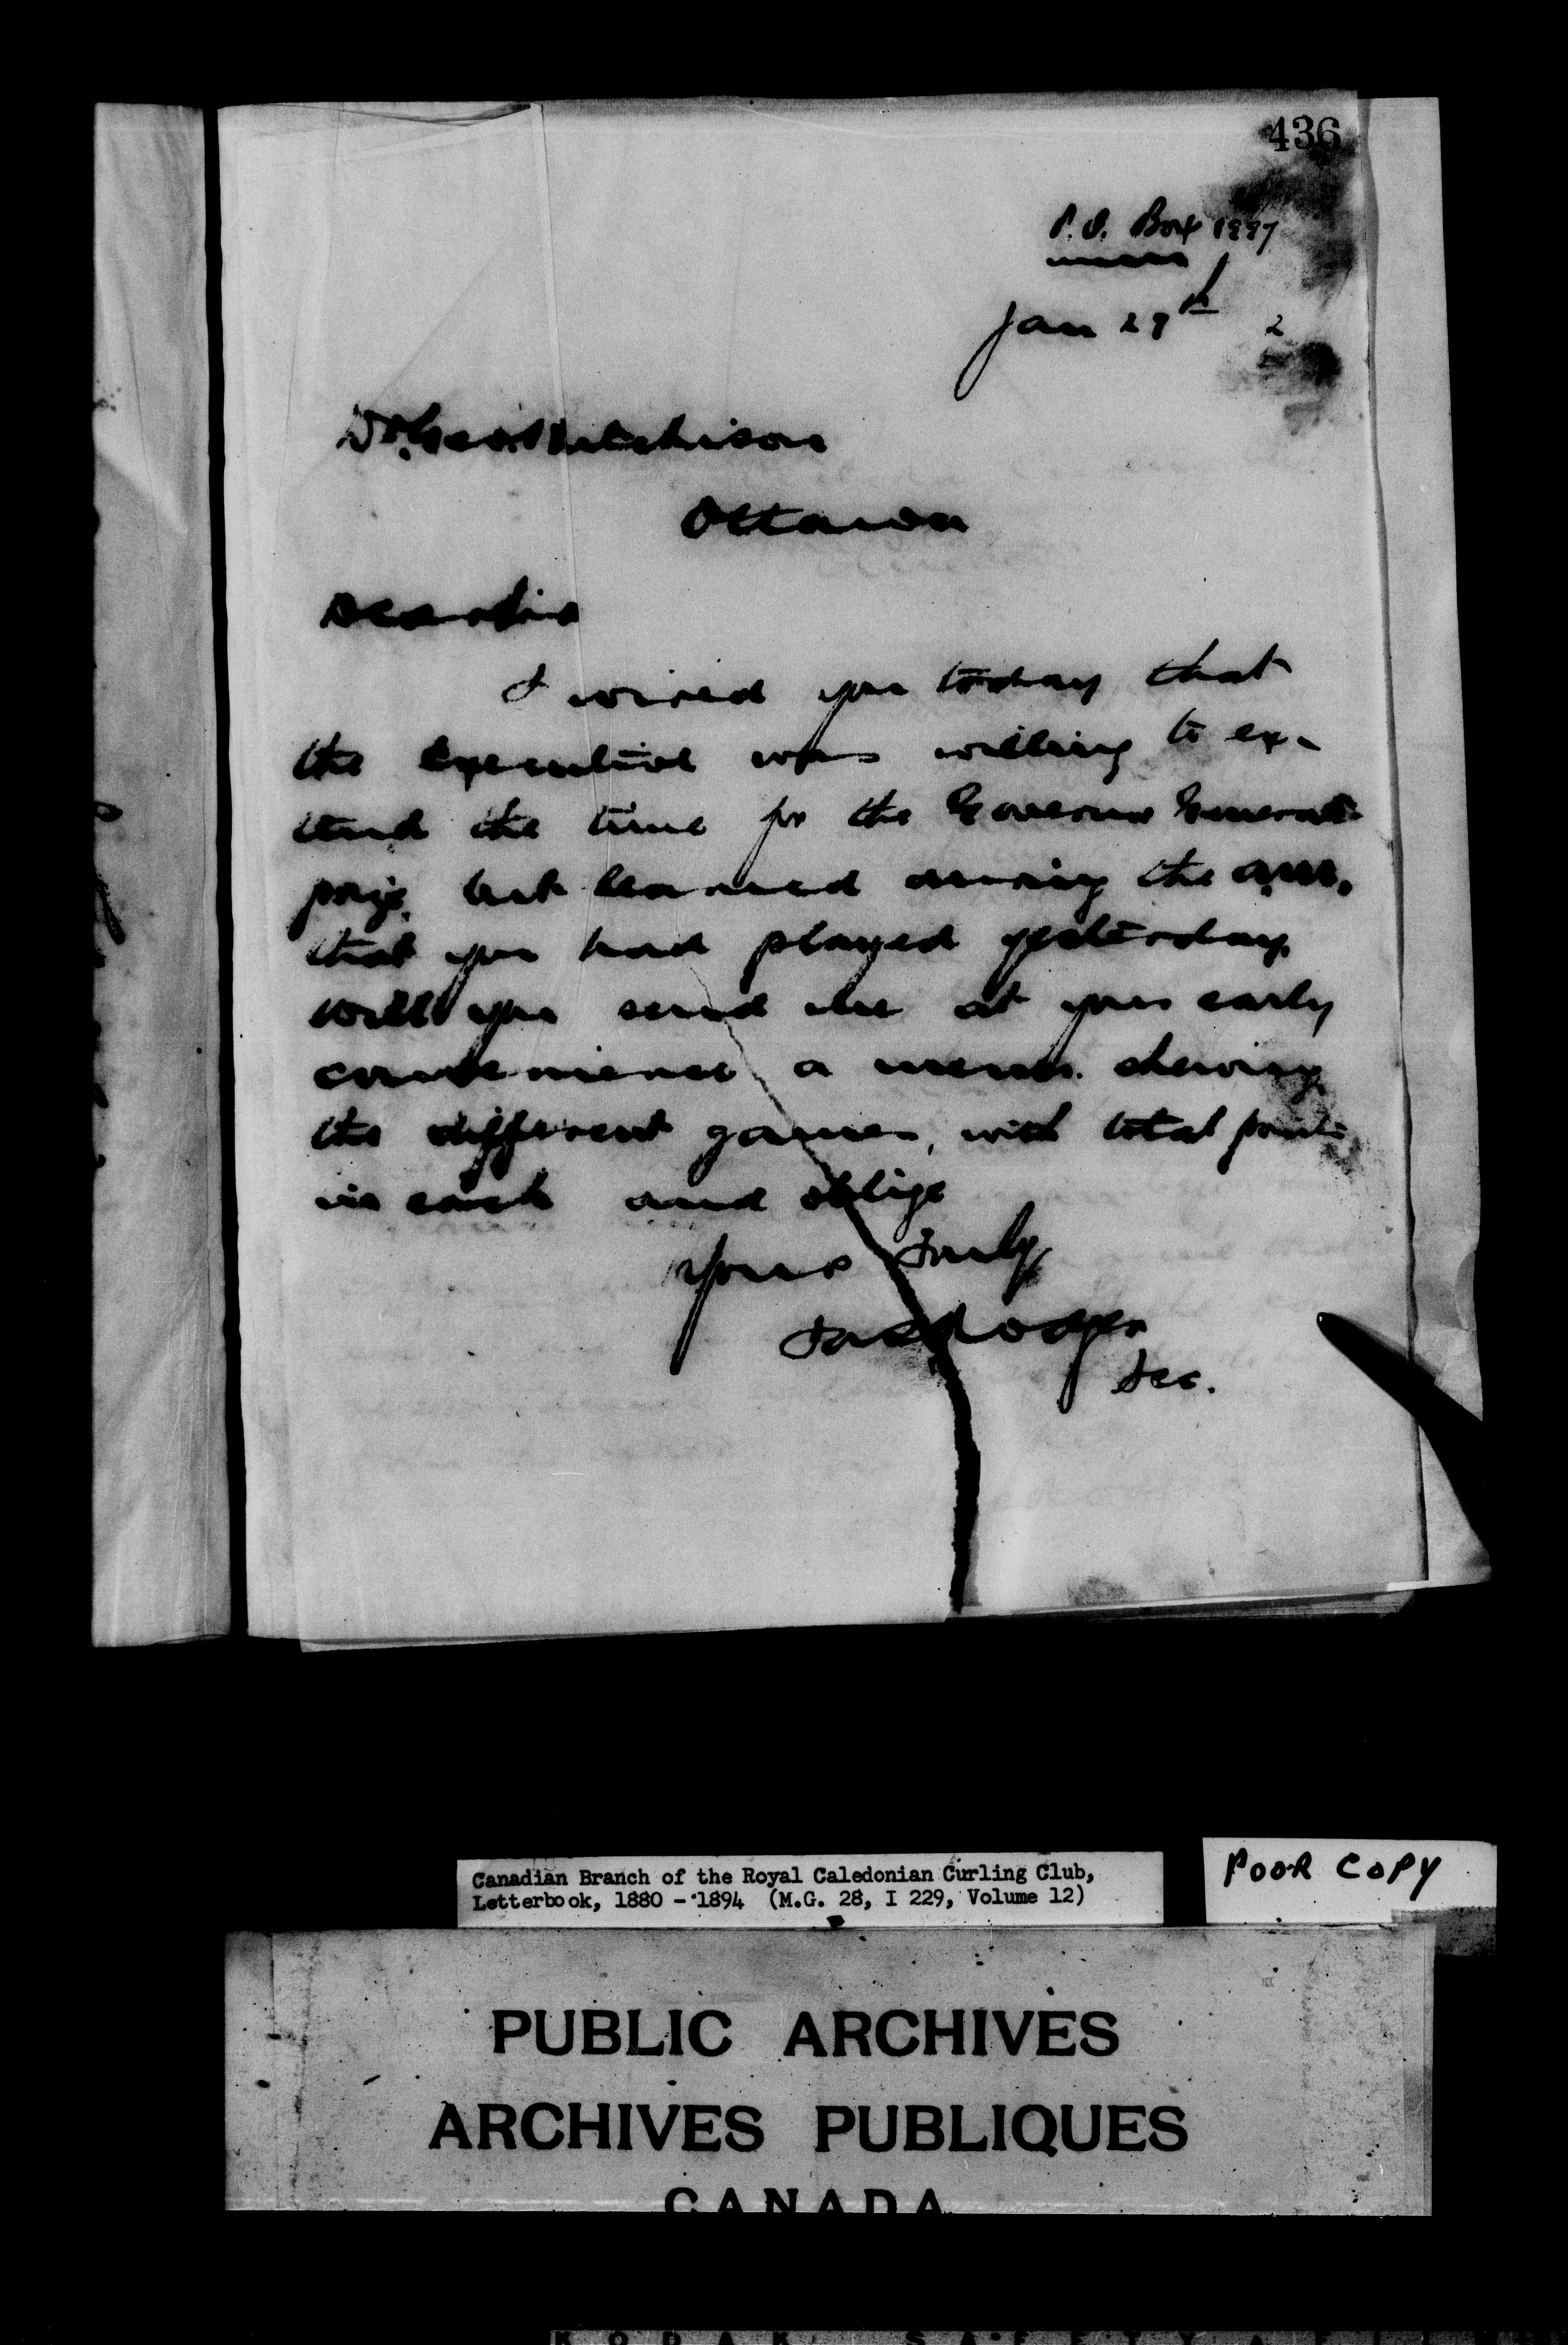 436
P.O. Box 1997
Jan 29th 2
Dr. Geo. Hutchison
Ottawa
Dear Sir
I wired you today that
the Executive was willing to ex-
tend the time for the Governor Generals
prize, but learned during the
that you had played yesterday.
Will you send me at your early
convenience a memo. shewing
the different games, with total points
in each and oblige
Yours Truly
Sec.
Canadian Branch of the Royal Caledonian Curling Club,
Letterbook, 1880 - 1894 (M.G. 28, I 229, Volume 12)
POOR COPY
PUBLIC ARCHIVES
ARCHIVES PUBLIQUES
CANADA